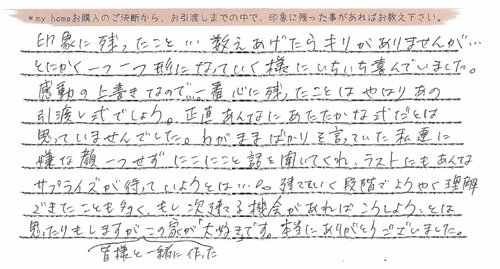 *my homeお購入のご決断から、お引渡しまでの中で、印象に残った事があればお教え下さい。
印象に残ったこと…数えあげたらキリがありませんが…
とにかく一つ一つ形になっていく様にいちいち喜んでいました。
感動の上書きなので…一番心に残ったことはやはりあの
引渡し式でしょう。正直あんなにあたたかな式だとは
思っていませんでした。わがままばかりを言っていた私達に
嫌な顔一つせずにこにこと話を聞いてくれ、ラストにもあんな
サプライズが待っていようとは…。建てていく段階でようやく理解
できたことも多く、もし次建てる機会があればこうしよう、とは
思ったりもしますがこの家が大好きです。本当にありがとうございました。
皆様と一緒に作った